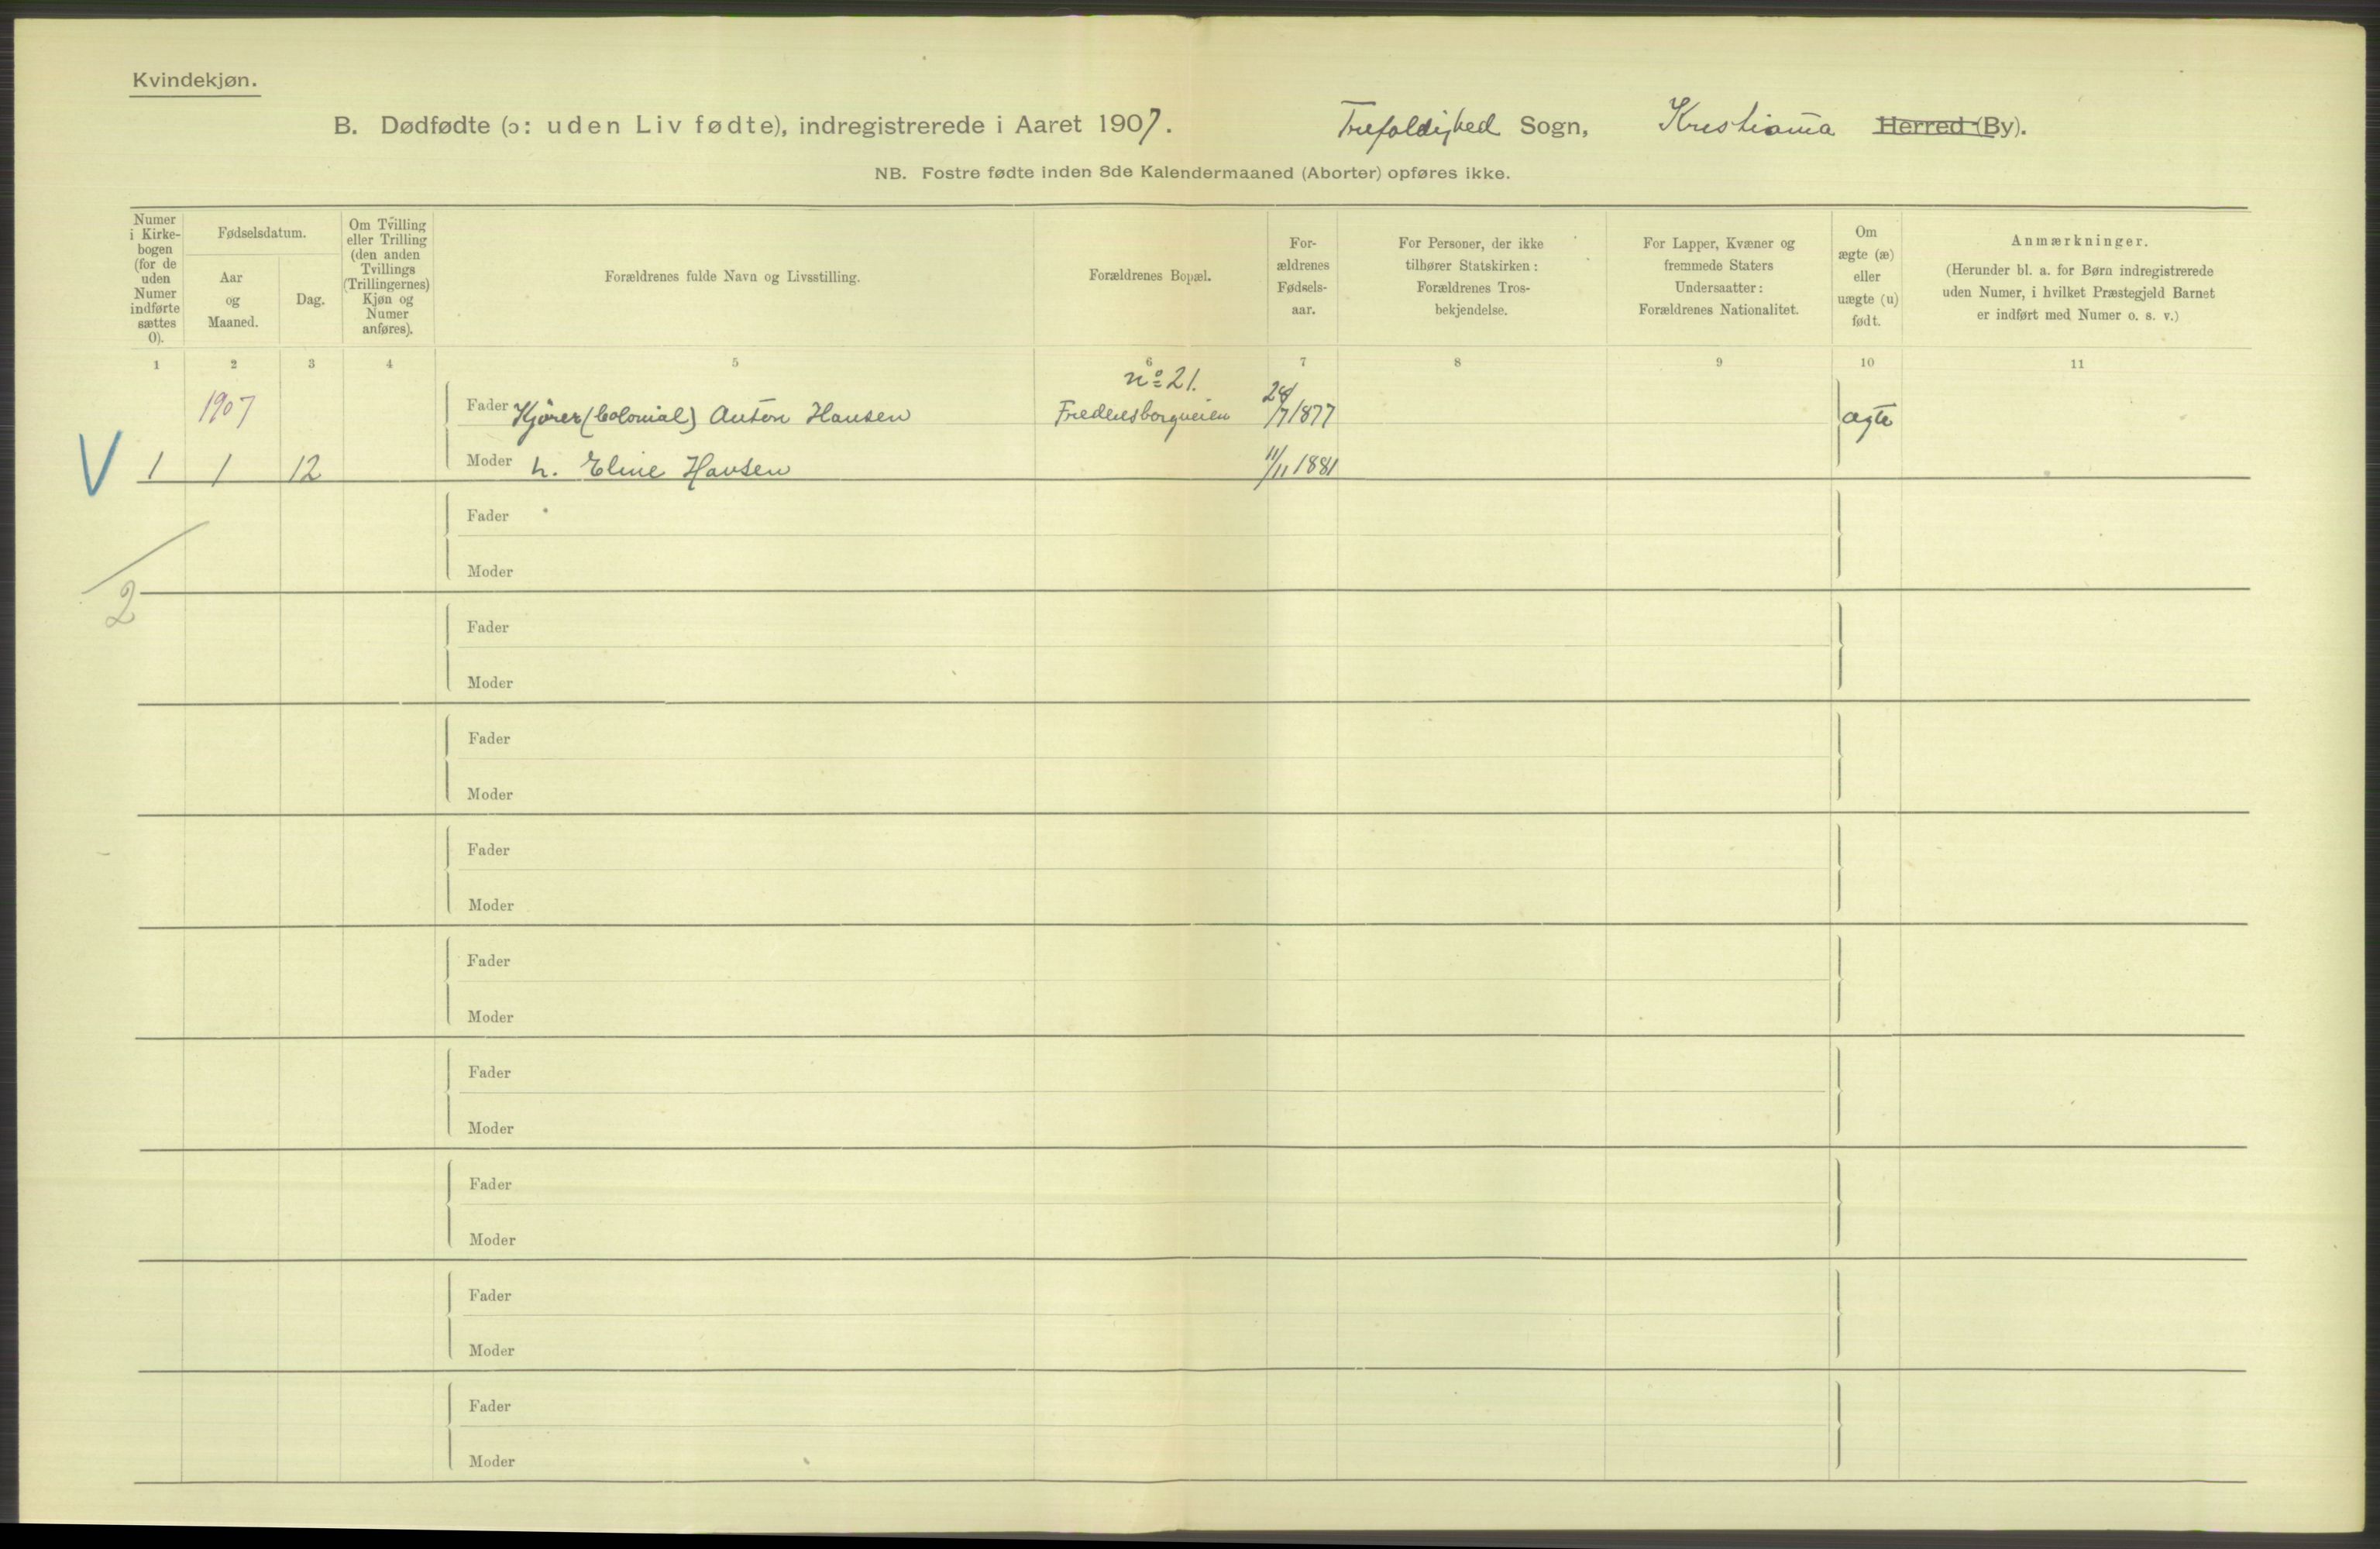 Kvindekjøn.
B. Dødfødte (ɔ: uden Liv fødte), indregistrerede i Aaret 1907. Trefoldighed Sogn, Kristiania Herred (By).
NB. Fostre fødte inden 8de Kalendermaaned (Aborter) opføres ikke.
Numer
i Kirke-
bogen
(for de
uden
Numer
indførte
sættes
0).
Fødselsdatum.
Aar
og
Maaned.
Dag.
Om Tvilling
eller Trilling
(den anden
Tvillings
(Trillingernes)
Kjøn og
Numer
anføres).
Forældrenes fulde Navn og Livsstilling.
Forældrenes Bopæl.
For-
ældrenes
Fødsels-
aar.
For Personer, der ikke
tilhører Statskirken:
Forældrenes Tros-
bekjendelse.
For Lapper, Kvæner og
fremmede Staters
Undersaatter:
Forældrenes Nationalitet.
Om
ægte (æ)
eller
uægte (u)
født.
Anmærkninger.
(Herunder bl. a. for Børn indregistrerede
uden Numer, i hvilket Præstegjeld Barnet
er indført med Numer o. s. v.)
1 2 3 4 5 6 7 8 9 10 11
No 21.
1907 Fader Kjører (Colonial) Anton Hansen Fredensborgveien 24/7 1877 ægte
V 1 1 12 Moder h. Eline Hansen 11/11 1881
Fader
Moder
2
Fader
Moder
Fader
Moder
Fader
Moder
Fader
Moder
Fader
Moder
Fader
Moder
Fader
Moder
Fader
Moder